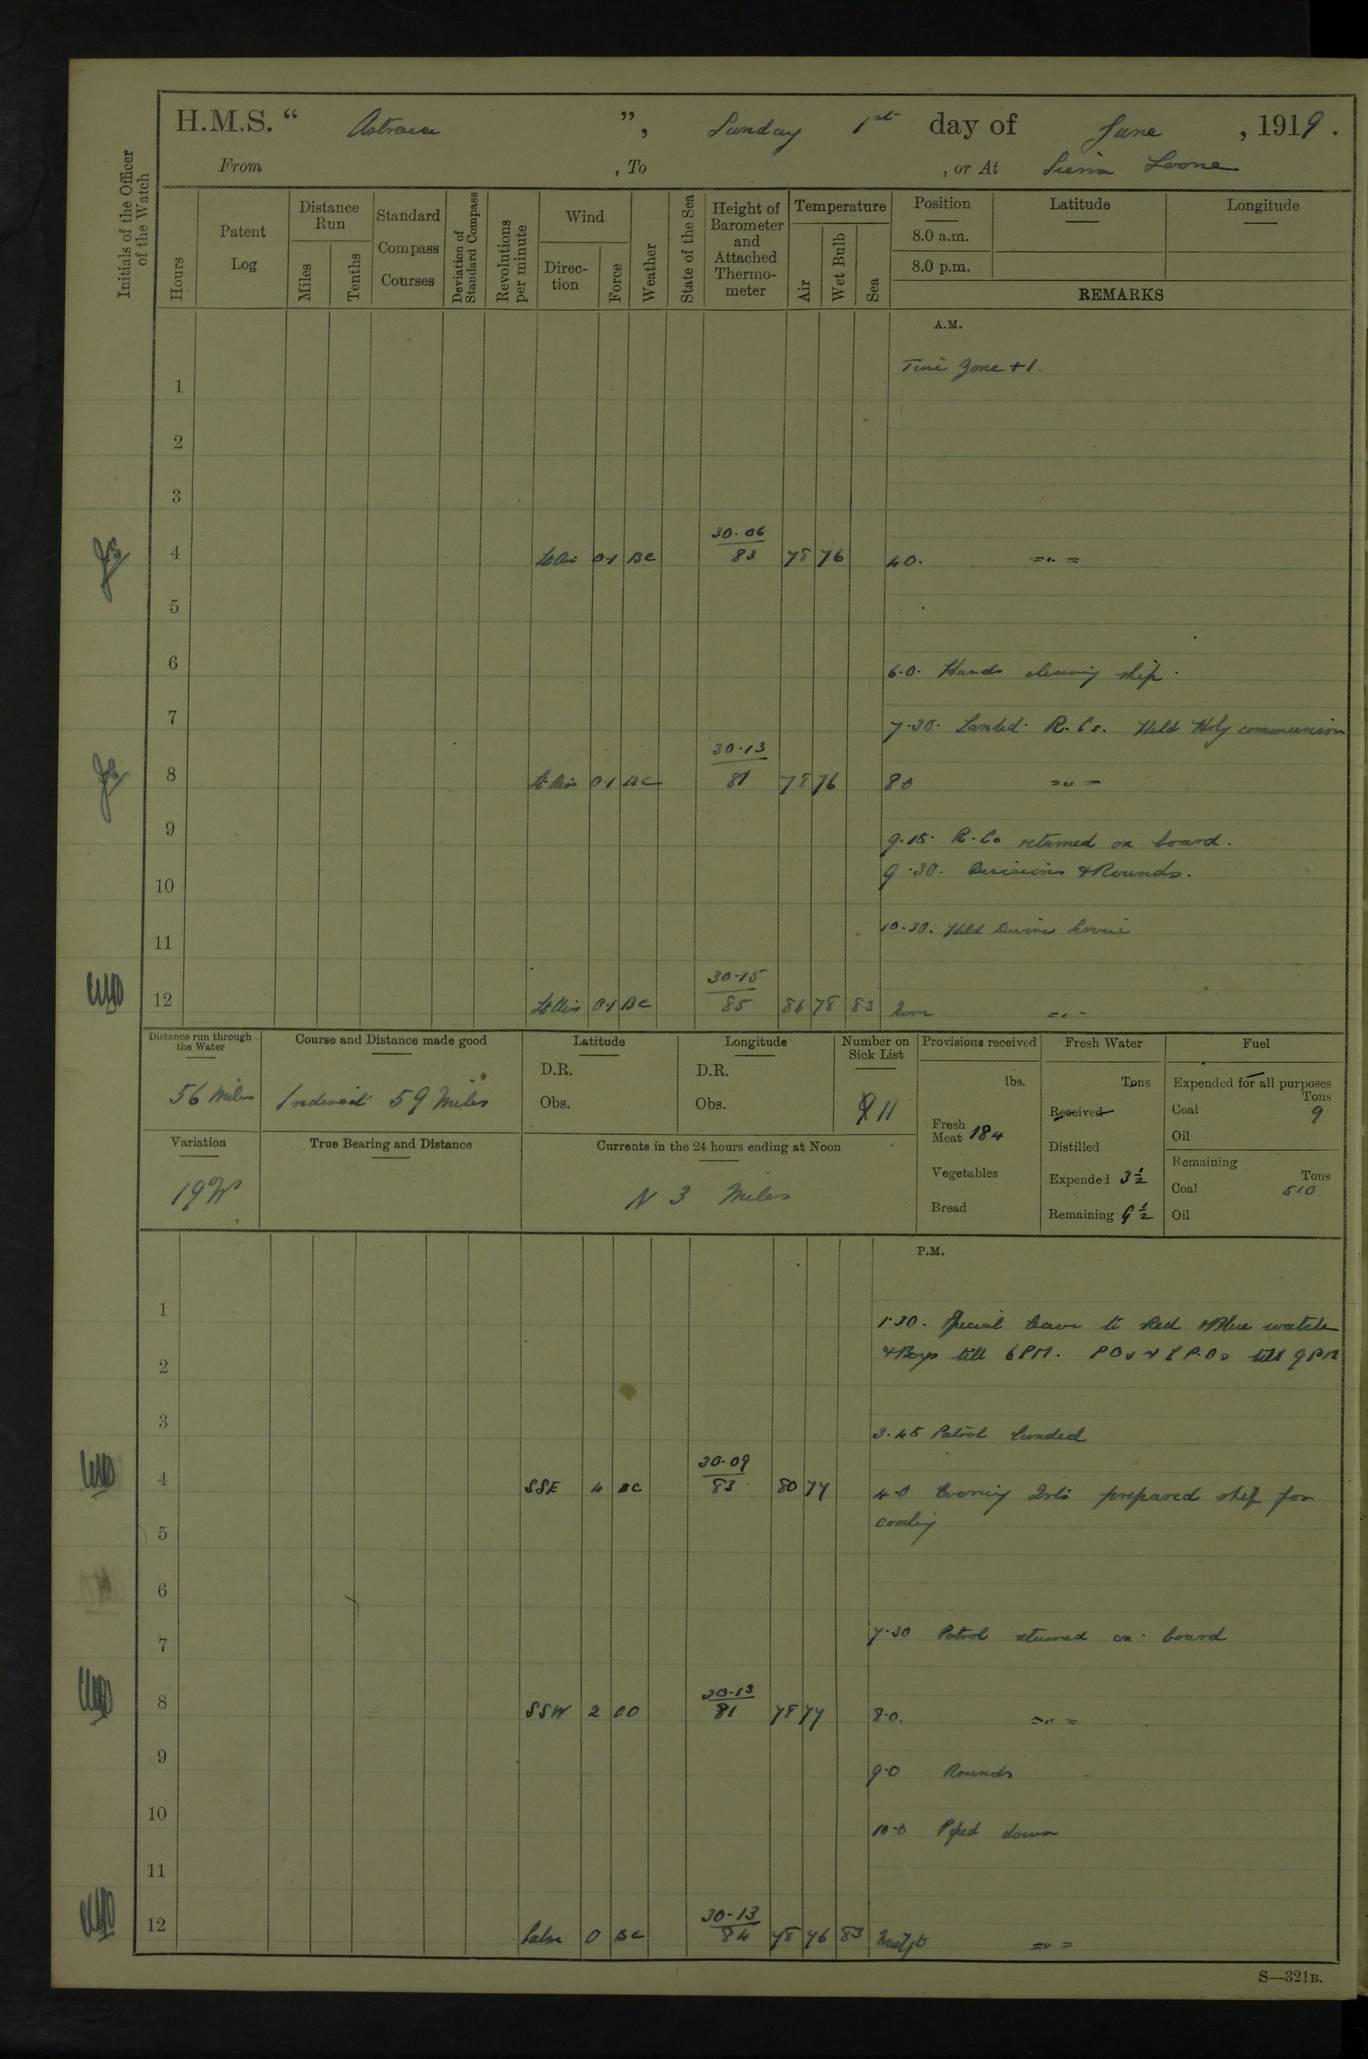 H.M.S. " Astraea ", Sunday 1st day of June, 1919.
From , To , or At Sierra Leone
Initials of the Officer of the Watch
Hours
Patent Log
Distance Run
Miles
Tenths
Standard Compass Courses
Deviation of Standard Compass
Revolutions per minute
Wind
Direc-tion
Force
Weather
State of the Sea
Height of Barometer and Attached Thermo-meter
Temperature
Air
Wet Bulb
Sea
Position
8.0 a.m.
8.0 p.m.
Latitude
Longitude
REMARKS
A.M.
Time Zone +1.
1
2
3
4 Lt Airs 0-1 BC 30.06 83 78 76 4.0. =„=
5
6 6.0. Hands cleaning ship.
7 7.30. Landed R.Cs. Held Holy communion
8 Lt Airs 0-1 BC 30.13 81 78 76 8.0 =„=
9 9.15. R.Cs returned on board.
9.30. Divisions & Rounds.
10
10.30. Held Divine Service
11
12 Lt Airs 0-1 BC 30.15 85 86 78 83 Noon =„=
Distance run through the Water
56 Miles
Course and Distance made good
Indirect 59 Miles
Latitude
D.R.
Obs.
Longitude
D.R.
Obs.
Number on Sick List
11
Provisions received
lbs.
Fresh Meat 184
Vegetables
Bread
Fresh Water
Tons
Received
Distilled
Expended 3½
Remaining 9½
Fuel
Expended for all purposes
Tons
Coal 9
Oil
Remaining
Tons
Coal 510
Oil
Variation
19 W
True Bearing and Distance
Currents in the 24 hours ending at Noon
N 3 Miles
P.M.
1 1.30. Special leave to Red & Blue watch
2 & Boys till 6 PM. POs & CPOs till 9 PM
3 3.45 Patrol landed
4 SSE 4 BC 30.09 83 80 77 4.0 Evening Qrts prepared ship for
coaling
5
6
7 7.30 Patrol returned on board
8 SSW 2 OC 30.13 81 78 77 8.0. =„=
9 9.0 Rounds
10 10.0 Piped down
11
12 Calm 0 BC 30.13 84 78 76 83 Midgt =„=
S—321B.